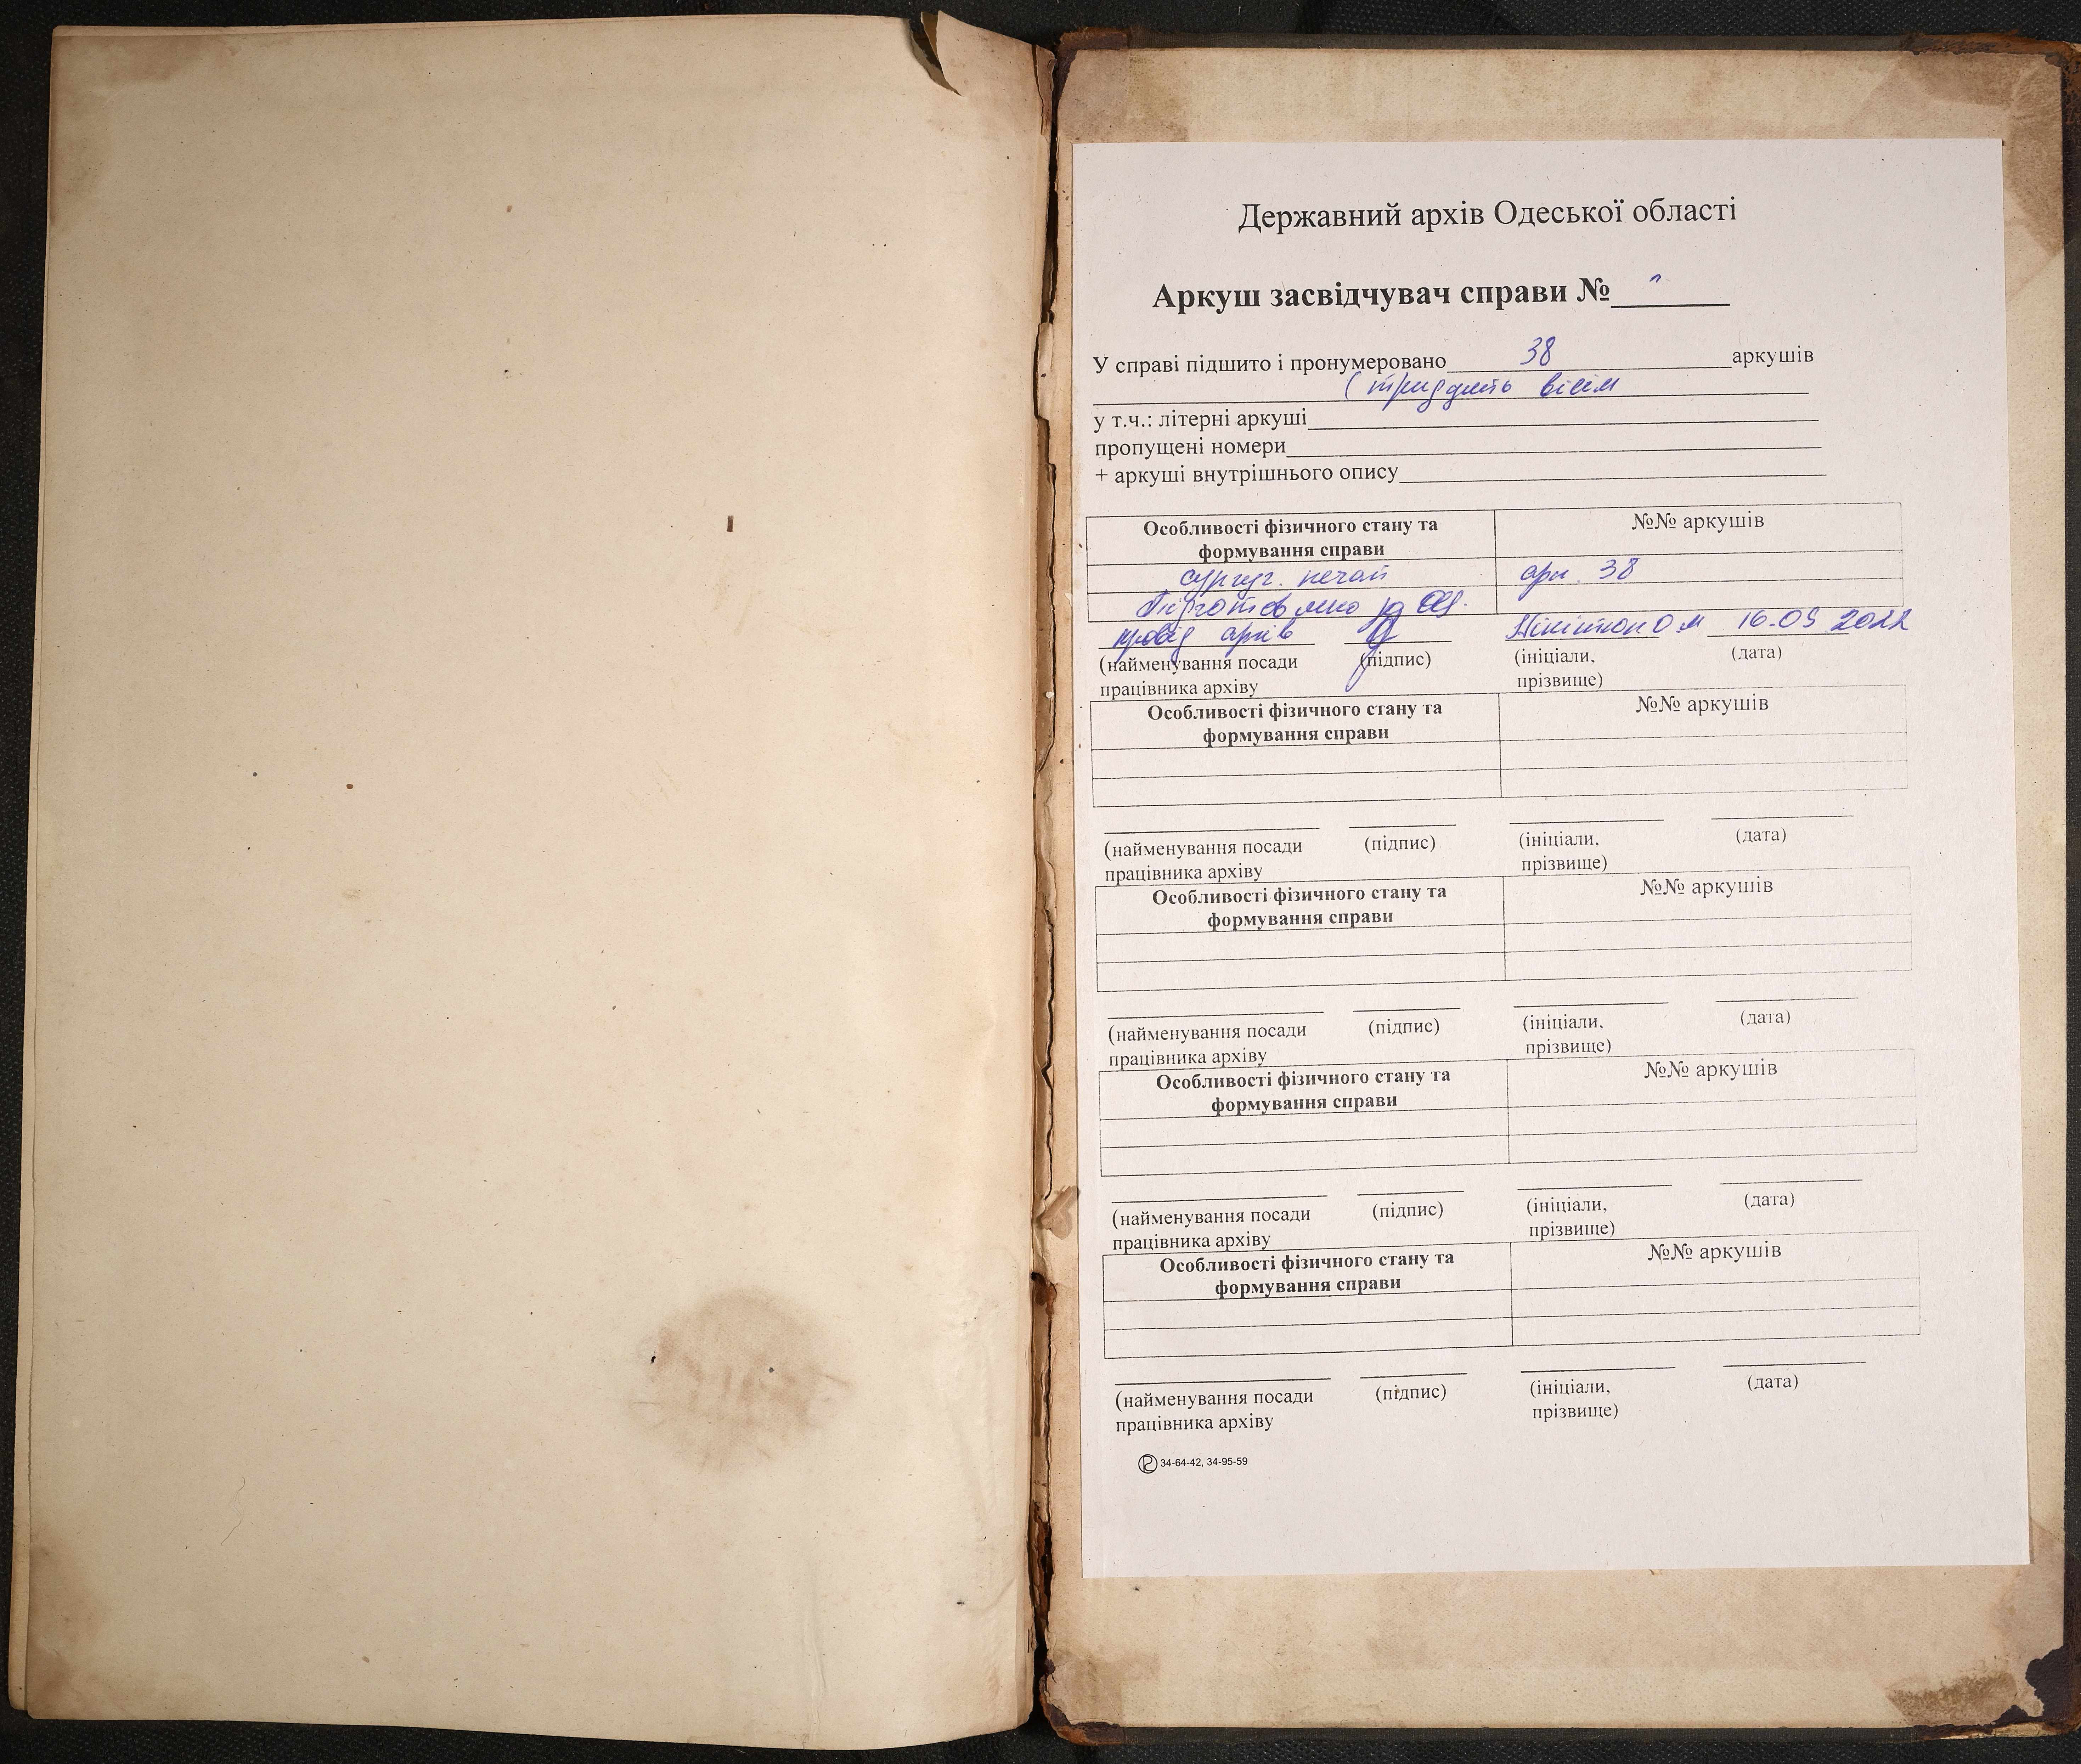 Державний архів Одеської області
Аркуш засвідчувач справи №
У справі підшито і пронумеровано 38 аркушів
( тридцять вісім
у т.ч.: літерні аркуші
пропущені номери
+ аркуші внутрішнього опису
Особливості фізичного стану та формування справи №№ аркушів
сургуч. печат арк. 38
Підготовлено до
провід архів 16.09 2022
(найменування посади працівника архіву (підпис) (ініціали, прізвище) (дата)
Особливості фізичного стану та формування справи №№ аркушів
(найменування посади працівника архіву (підпис) (ініціали, прізвище) (дата)
Особливості фізичного стану та формування справи №№ аркушів
(найменування посади працівника архіву (підпис) (ініціали, прізвище) (дата)
Особливості фізичного стану та формування справи №№ аркушів
(найменування посади працівника архіву (підпис) (ініціали, прізвище) (дата)
Особливості фізичного стану та формування справи №№ аркушів
(найменування посади працівника архіву (підпис) (ініціали, прізвище) (дата)
34-64-42, 34-95-59